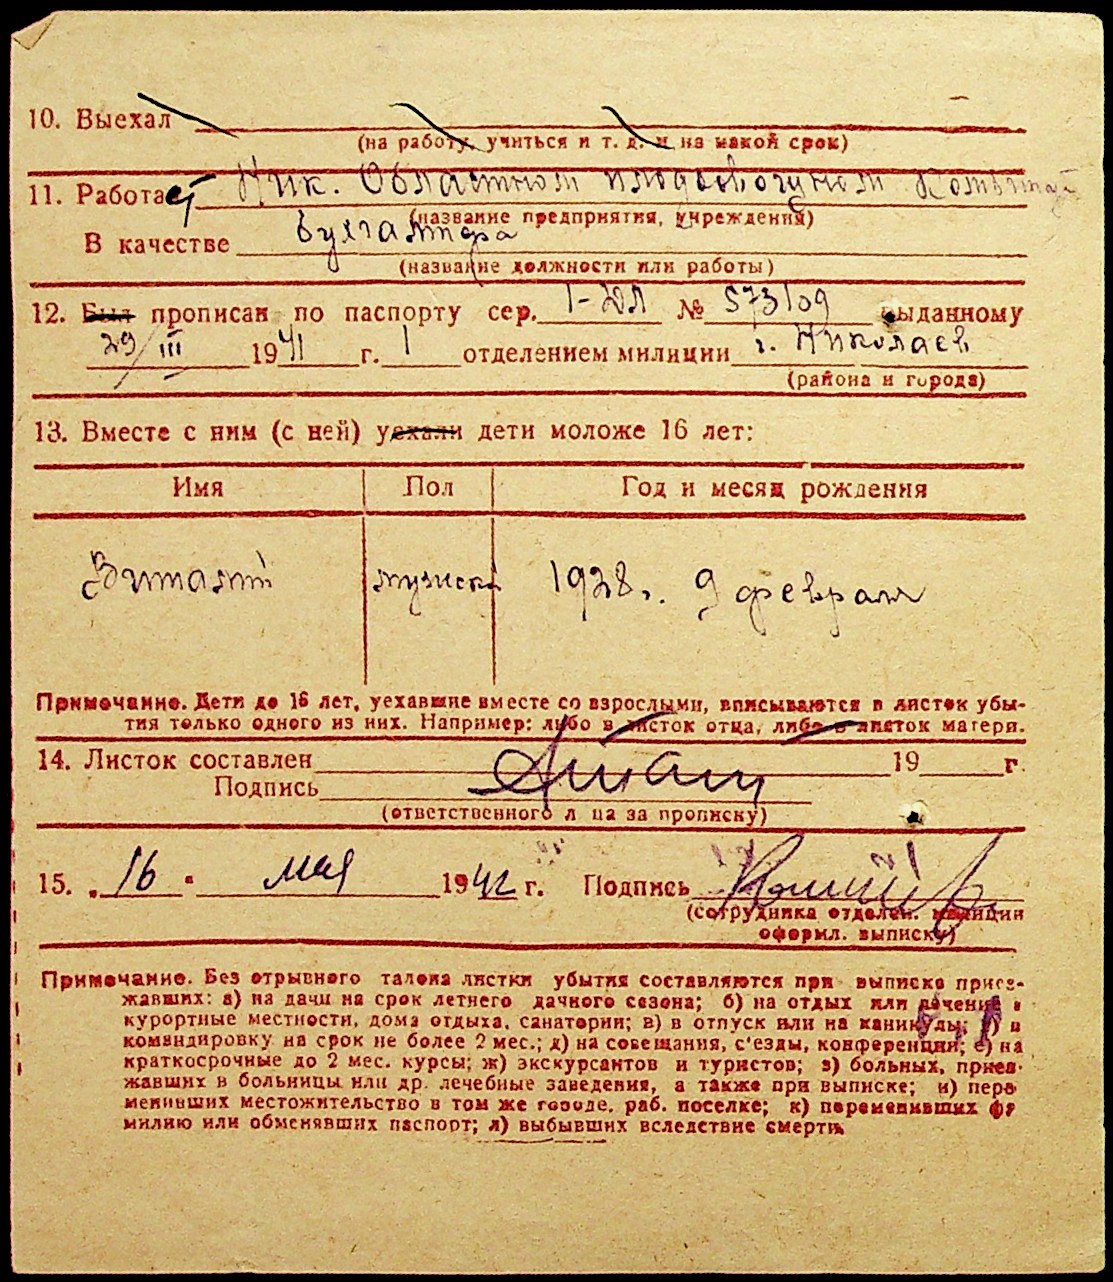 10. Выехал
(на работу, учиться и т. д. и на какой срок)
11. Работает Ник. Областном плодоовощном
(название предприятия, учреждения)
В качестве бухгалтера
(название должности или работы)
12. Был прописан по паспорту сер. I-ДЛ № 573109 выданному
29/III 1941 г. 1 отделением милиции г. Николаев
(района и города)
13. Вместе с ним (с ней) уехали дети моложе 16 лет:
Имя Пол Год и месяц рождения
Виталий мужской 1928 г. 9 февраля
Примечание. Дети до 16 лет, уехавшие вместе со взрослыми, вписываются в листок убы-
тия только одного из них. Например: либо в листок отца, либо в листок матери.
14. Листок составлен 19 г.
Подпись
(ответственного л ца за прописку)
15. „16" мая 1942 г. Подпись
(сотрудника отделен. милиции
оформл. выписку)
Примечание. Без отрывного талона листки убытия составляются при выписке приез-
жавших: а) на дачи на срок летнего дачного сезона; б) на отдых или лечение в
курортные местности, дома отдыха, санатории; в) в отпуск или на каникулы; г) в
командировку на срок не более 2 мес.; д) на совещания, с'езды, конференции; е) на
краткосрочные до 2 мес. курсы; ж) экскурсантов и туристов; з) больных, приез-
жавших в больницы или др. лечебные заведения, а также при выписке; и) пере
менивших местожительство в том же городе, раб. поселке; к) переменивших фа
милию или обменявших паспорт; л) выбывших вследствие смерти